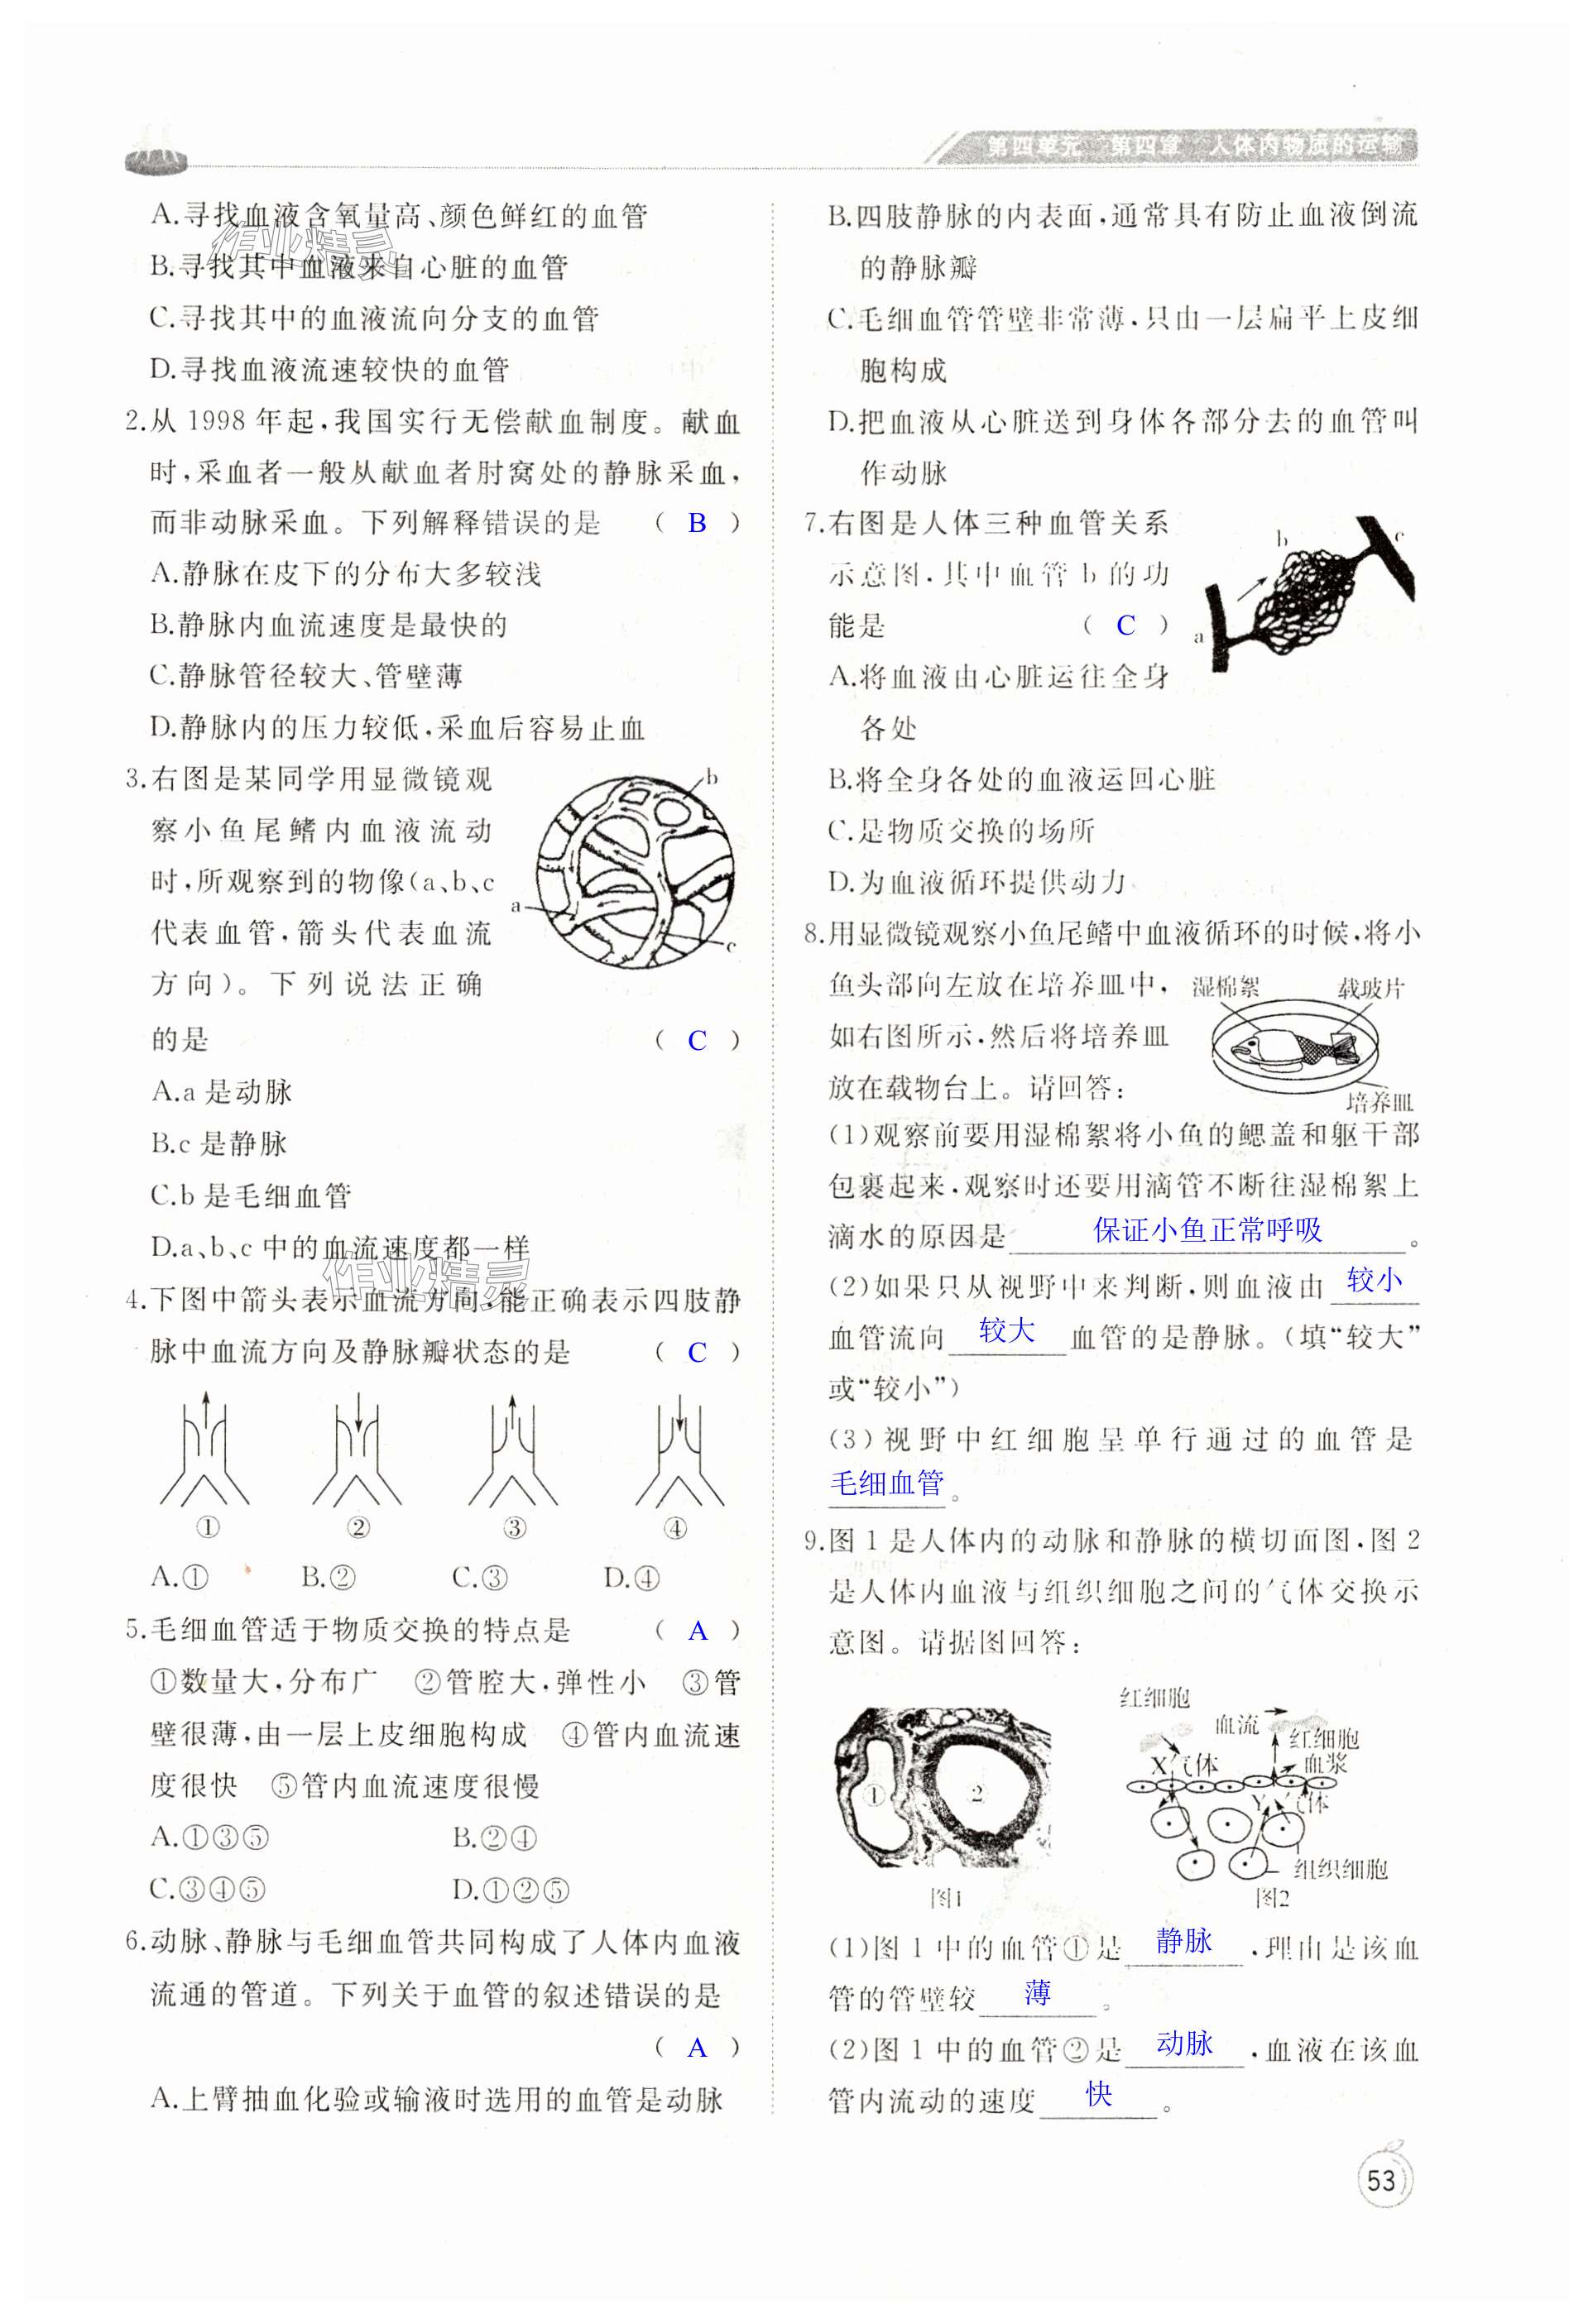 第四单元 第四章 人体内物质的运输
A.寻找血液含氧量高、颜色鲜红的血管
作业精灵
B.寻找其中血液来自心脏的血管
C.寻找其中的血液流向分支的血管
D.寻找血液流速较快的血管
2.从 1998 年起,我国实行无偿献血制度。献血
时,采血者一般从献血者肘窝处的静脉采血,
而非动脉采血。下列解释错误的是 ( B )
A.静脉在皮下的分布大多较浅
B.静脉内血流速度是最快的
C.静脉管径较大、管壁薄
D.静脉内的压力较低,采血后容易止血
3.右图是某同学用显微镜观
察小鱼尾鳍内血液流动
时,所观察到的物像(a、b、c
代表血管,箭头代表血流
方向)。下列说法正确
的是 ( C )
b
a
c
A.a 是动脉
B.c 是静脉
C.b 是毛细血管
D.a、b、c 中的血流速度都一样
作业精灵
4.下图中箭头表示血流方向,能正确表示四肢静
脉中血流方向及静脉瓣状态的是 ( C )
① ② ③ ④
A.① B.② C.③ D.④
5.毛细血管适于物质交换的特点是 ( A )
①数量大,分布广 ②管腔大,弹性小 ③管
壁很薄,由一层上皮细胞构成 ④管内血流速
度很快 ⑤管内血流速度很慢
A.①③⑤ B.②④
C.③④⑤ D.①②⑤
6.动脉、静脉与毛细血管共同构成了人体内血液
流通的管道。下列关于血管的叙述错误的是
( A )
A.上臂抽血化验或输液时选用的血管是动脉
B.四肢静脉的内表面,通常具有防止血液倒流
的静脉瓣
C.毛细血管管壁非常薄,只由一层扁平上皮细
胞构成
D.把血液从心脏送到身体各部分去的血管叫
作动脉
7.右图是人体三种血管关系
示意图,其中血管 b 的功
能是 ( C )
b c
a
A.将血液由心脏运往全身
各处
B.将全身各处的血液运回心脏
C.是物质交换的场所
D.为血液循环提供动力
8.用显微镜观察小鱼尾鳍中血液循环的时候,将小
鱼头部向左放在培养皿中,
如右图所示,然后将培养皿
放在载物台上。请回答:
湿棉絮 载玻片
培养皿
(1)观察前要用湿棉絮将小鱼的鳃盖和躯干部
包裹起来,观察时还要用滴管不断往湿棉絮上
滴水的原因是 保证小鱼正常呼吸 。
(2)如果只从视野中来判断,则血液由 较小
血管流向 较大 血管的是静脉。(填“较大”
或“较小”)
(3)视野中红细胞呈单行通过的血管是
毛细血管 。
9.图 1 是人体内的动脉和静脉的横切面图,图 2
是人体内血液与组织细胞之间的气体交换示
意图。请据图回答:
① 2
图1
红细胞
血流
红细胞
X气体 血浆
Y气体
组织细胞
图2
(1)图 1 中的血管①是 静脉 ,理由是该血
管的管壁较 薄 。
(2)图 1 中的血管②是 动脉 ,血液在该血
管内流动的速度 快 。
53